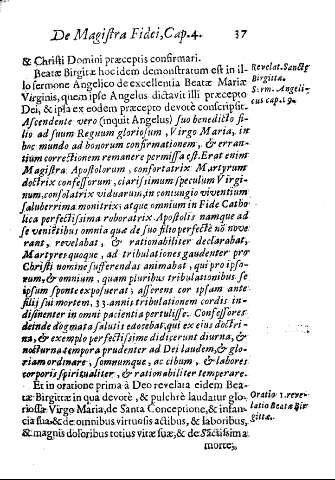 De Magistra Fidei, Cap. 4. 37
& Christi Domini præceptis confirmari.
Beatæ Birgitæ hoc idem demonstratum est in il-
lo sermone Angelico de excellentia Beatæ Mariæ
Virginis, quem ipse Angelus dictavit illi præcepto
Dei, & ipsa ex eodem præcepto devotè conscripsit.
Ascendente vero (inquit Angelus) suo benedicto fi-
lio ad suum Regnum gloriosum, Virgo Maria, in
hoc mundo ad bonorum confirmationem, & erran-
tium correctionem remanere permissa est. Erat enim
Magistra Apostolorum, confortatrix Martyrum
doctrix confessorum, clarissimum speculum Virgi-
num, consolatrix viduarum, in coniugio viventium
saluberrima monitrix; atque omnium in Fide Catho-
lica perfectissima roboratrix. Apostolis namque ad
se venientibus omnia quæ de suo filio perfectè nõ nove
rant, revelabat, & rationabiliter declarabat,
Martyres quoque, ad tribulationes gaudenter pro
Christi nomine sufferendas animabat, qui pro ipso-
rum, & omnium, quam pluribus tribulationibus se
ipsum sponte exposuerat; asserens cor ipsam ante
filij sui mortem, 33. annis tribulationem cordis in-
disinenter in omni pacientia pertulisse. Confessores
deinde dogmata salutis edocebat, qui ex eius doctri-
na, & exemplo perfectissime didicerunt diurna, &
nocturna tempora prudenter ad Dei laudem, & glo-
riam ordinare, somnumque, ac cibum, & labores
corporis spiritualiter, & rationabiliter temperare.
Et in oratione prima à Deo revelata eidem Bea-
tæ Birgittæ in qua devotè, & pulchrè laudatur glo-
riosa Virgo Maria, de Santa Conceptione, & infan-
cia sua, & de omnibus virtuosis actibus, & laboribus,
& magnis doloribus totius vitæ suæ, & de Sãctissima
morte,
Revelat. Sanctæ
Birgittæ.
Serm. Angeli-
cus cap. 19.
Oratio 1. reve-
latio Beatæ Bir
gittæ.